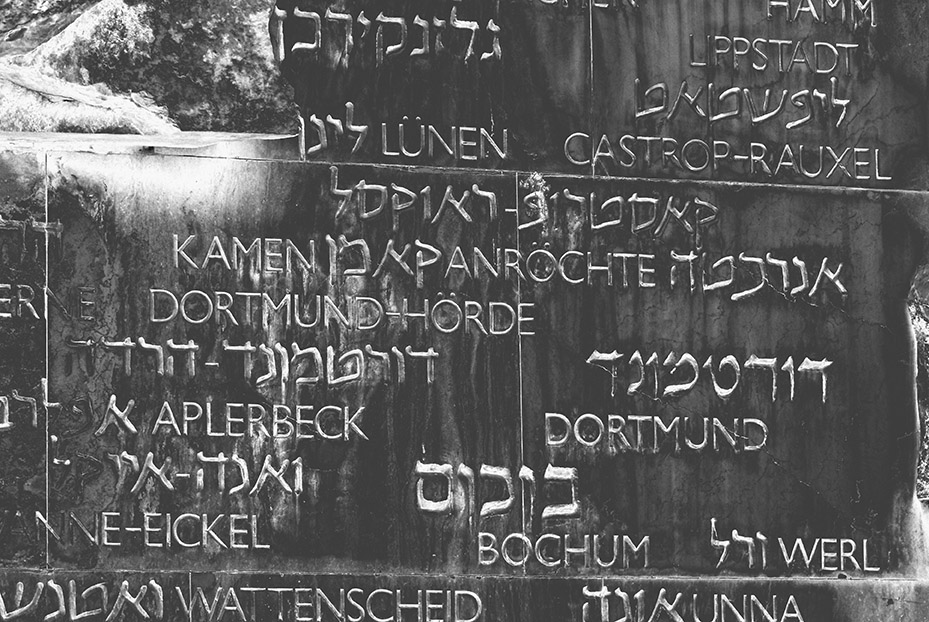 HAMM
גלינקירכן
LIPPSTADT
ליפשטאט
לינן LÜNEN
CASTROP-RAUXEL
קאסטרופ-ראוקסל
KAMEN קאמן
ANRÖCHTE אנרכטה
DORTMUND-HÖRDE
דורטמונד-הרדה
דורטמונד
APLERBECK
DORTMUND
ואנה-אי
בוכום
ANNE-EICKEL
BOCHUM
ורל WERL
WATTENSCHEID
אונה UNNA